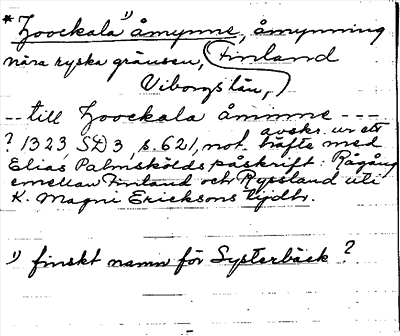 * Zoockala¹⁾ åmynne, åmynning
nära ryska gränsen, Finland
Viborgs län,
-- till Zoockala åminne ---
? 1323, SD 3, s. 621, not. avskr. ur ett
häfte med
Elias Palmskölds påskrift. Rågång
emellan Finland och Ryssland uti
K. Magni Ericksons tijdhr.
1) finskt namn för Systerbäck ?